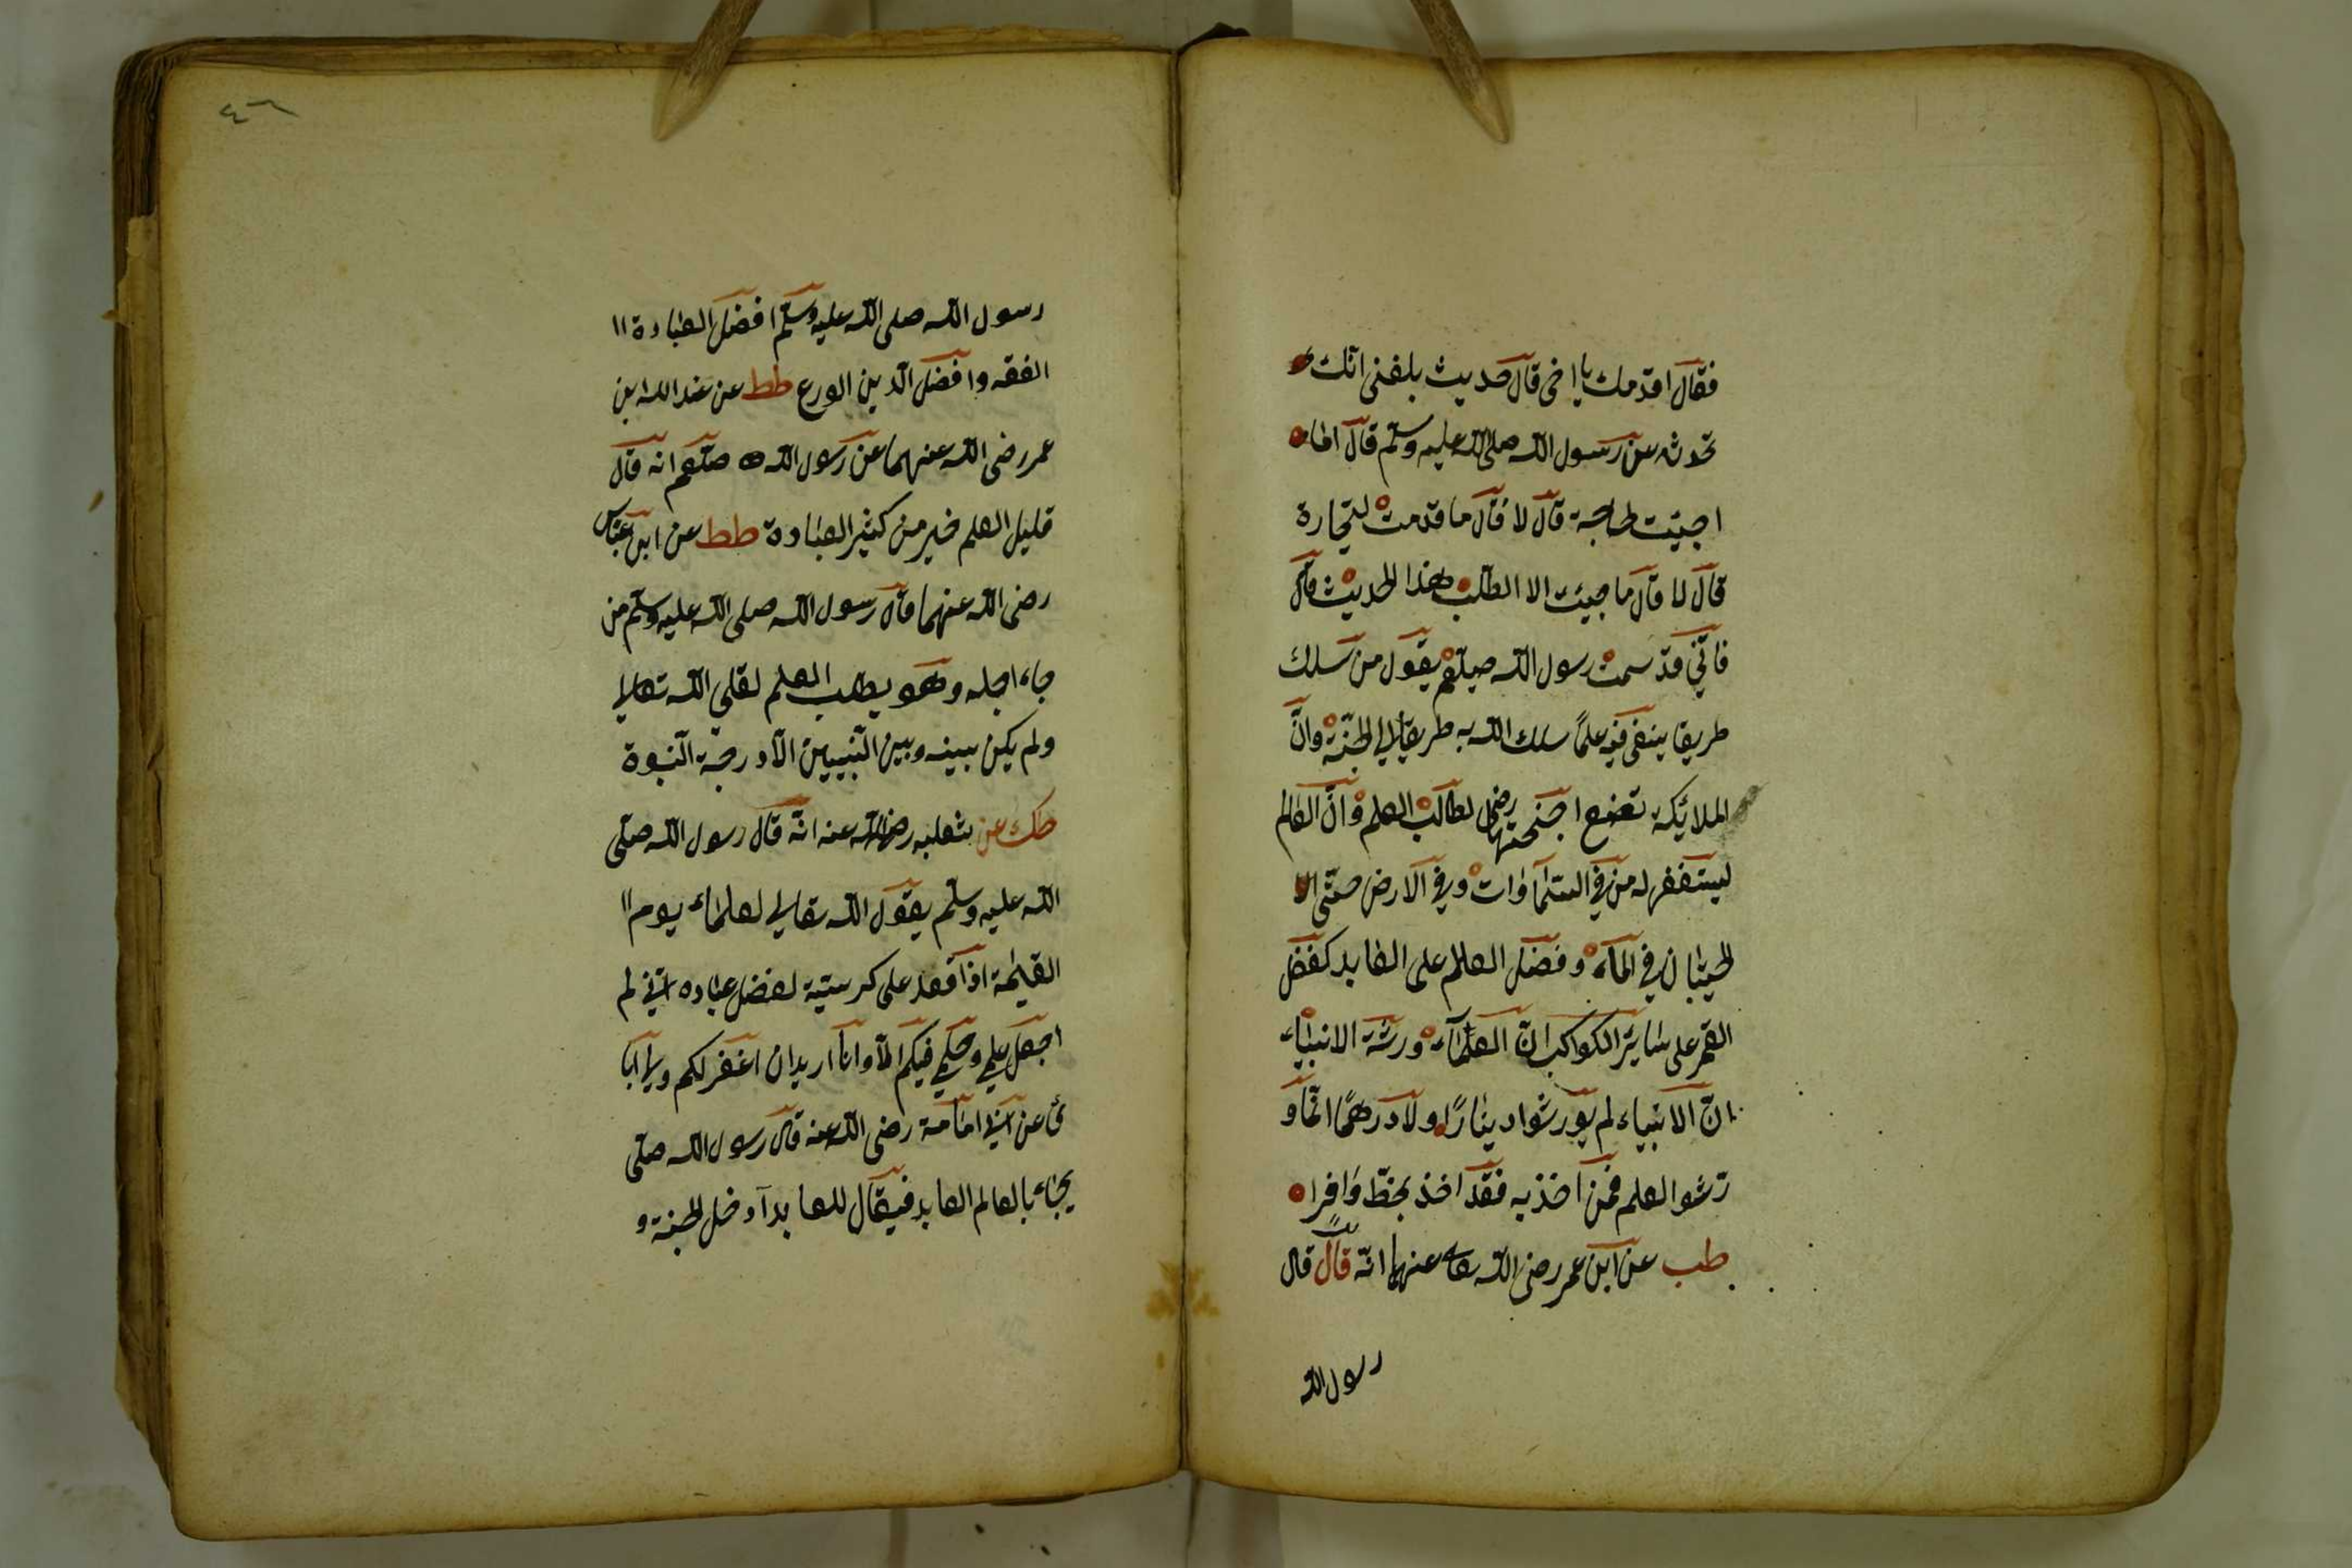 فقال اقدمك يا اخى قال حديث بلغنى انك
تحدثه عن رسول الله صلى الله عليه وسلم قال اما
اجيئت لحاجة قال لا قال ما قدمت لتجارة
قال لا قال ما جيئت الا الطلب هذا الحديث قال
فانّي قد سمت رسول الله صلعم يقول من سلك
طريقا يبتغى فيه علمًا سلك الله به طريقا الي الجنّة وانّ
الملائيكة تضع اجنحتها رضى لطالب العلم وانّ العالم
ليستغفر له من في السّمٰاوات وفي الارض حتّى ال
الحيتان في المآء وفضل العالم على العابد كفضل
القمر على سٰاير الكواكب انّ العلمٰآء ورثة الانبيٰاء
انّ الانبياء لم يورثوا دينارًا ولا درهمًا انّما و
رّثوا العلم فمن اخذ به فقد اخذ بحظّ وافرا
طب عن ابن عمر رضى الله تعا عنهما انّه قال قال
رسول الله
٤٦
رسول الله صلى الله عليه وسلّم افضل العبادة اا
الفقه وافضل الدين الورع طط عن عبدالله ابن
عمر رضى الله عنهما عن رسول الله صلعم انه قال
قليل العلم خير من كثير العبٰادة طط عن ابن عبّاس
رضى الله عنهما قال رسول الله صلى الله عليه وسلّم من
جاء اجله وهو يطلب العلم لقى الله تعالي
ولم يكن بينه وبين النّبيين الّا درجة النّبوة
طك عن ثعلبه رضى الله عنه انّه قال رسول الله صلّى
الله عليه وسلّم يقول الله تعالي لعلمٰاء يوم اا
القيٰمة اذا قعد على كرستيه لفضل عبٰاده انّي لم
اجعل علمي وحكمي فيكم الّا وانا اريد ان اغفر لكم ولا ابا
لى عن ابي امٰامة رضى الله عنه قال رسول الله صلّى
يجٰاء بالعالم العابد فيقال للعابد آدخل الجنة و